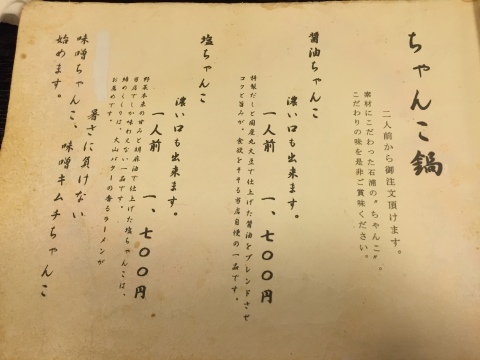 ちゃんこ鍋
二人前から御注文頂けます。
素材にこだわった石浦の〝ちゃんこ〟。
こだわりの味を是非ご賞味ください。
醤油ちゃんこ
濃い口も出来ます。
一人前　一、七〇〇円
特製だしと国産丸大豆で仕上げた醤油をブレンドさせ
コクと旨みが、食欲をそそる当店自慢の一品です。
塩ちゃんこ
濃い口も出来ます。
一人前　一、七〇〇円。
野菜本来の甘みと胡麻油で仕上げた塩ちゃんこは、
当店でしか味わえない一品です。
締めくくりは、大山バターの香るラーメンが
お薦めです。
暑さに負けない
味噌ちゃんこ、味噌キムチちゃんこ
始めます。